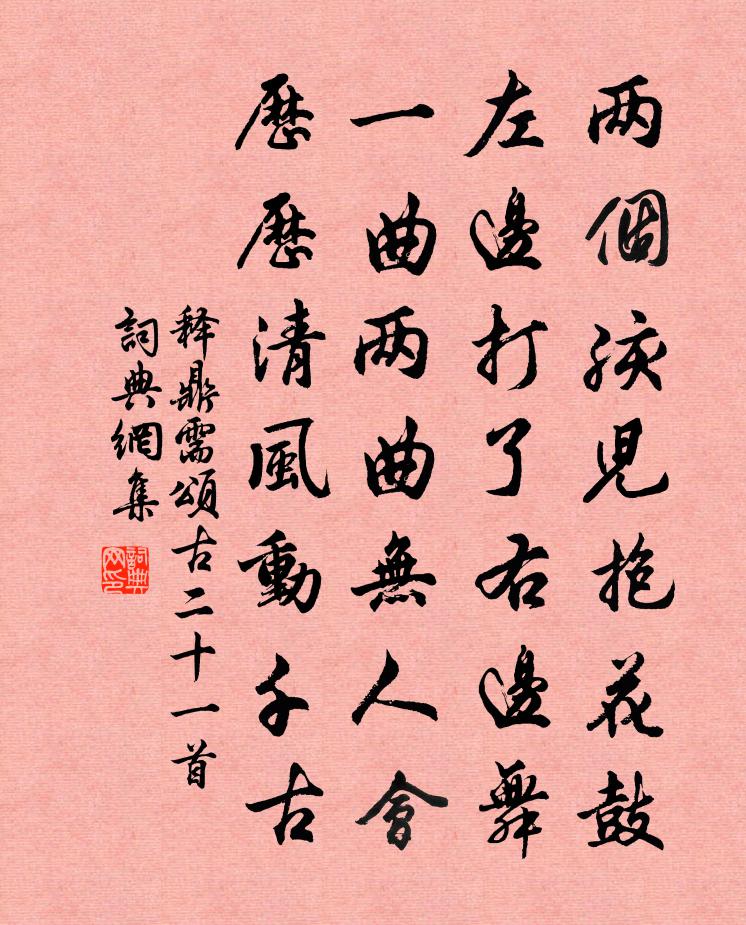 两個孩児抱花鼓
左邊打了右邊舞
一曲两曲無人會
歷歷清風動千古
释鼎需頌古二十一首
詞典網集
詞典网印